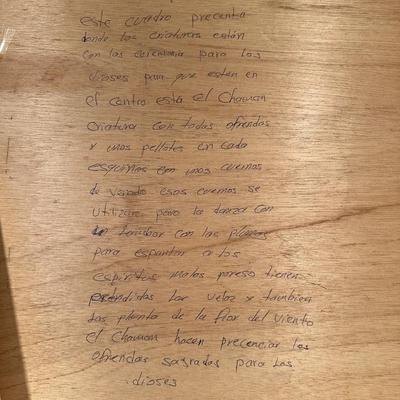 este cuadro precenta
donde las criaturas están
con las ceremonia para los
dioses para que esten en
el centro esta el Chaman
criatura con todas ofrendas
y unos pellotes en cada
esquinas con unos cuernos
de venado esos cuernos se
utilizan para la danza con
tambor con las plumas
para espantar a los
espiritus malos poreso tienen
prendidas las velas y tambien
las planta de la flor del viento
el Chaman hacen precenciar las
ofrendas sagradas para los
dioses